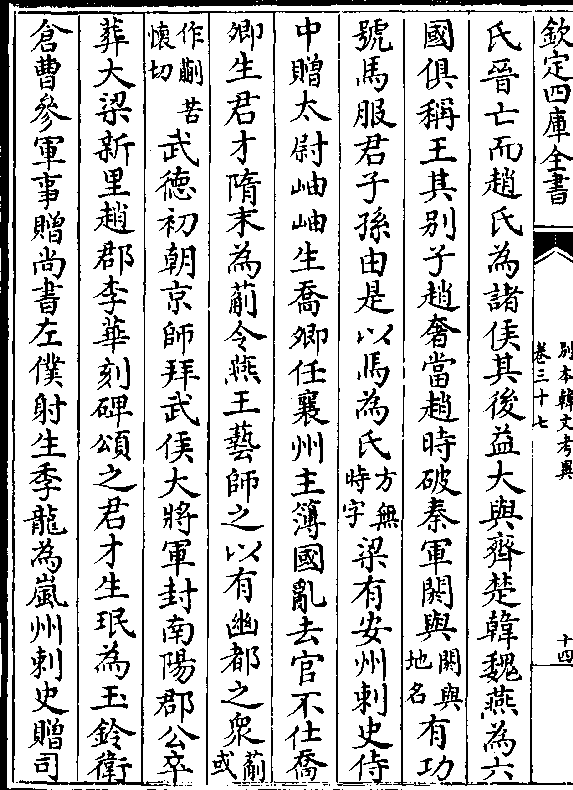 欽定四庫全書
別本韓文考異
卷三十七
十四
氏晉亡而趙氏為諸侯其後益大與齊楚韓魏燕為六
國俱稱王其别子趙奢當趙時破秦軍閼與閼與地名有功
號馬服君子孫由是以馬為氏方無時字梁有安州刺史侍
中贈太尉岫岫生喬卿任襄州主簿國亂去官不仕喬
卿生君才隋末為薊令燕王藝師之以有幽都之衆薊或
作蒯苦懷切武德初朝京師拜武侯大將軍封南陽郡公卒
葬大梁新里趙郡李華刻碑頌之君才生珉為玉鈐衛
倉曹參軍事贈尚書左僕射生季龍為嵐州刺史贈司